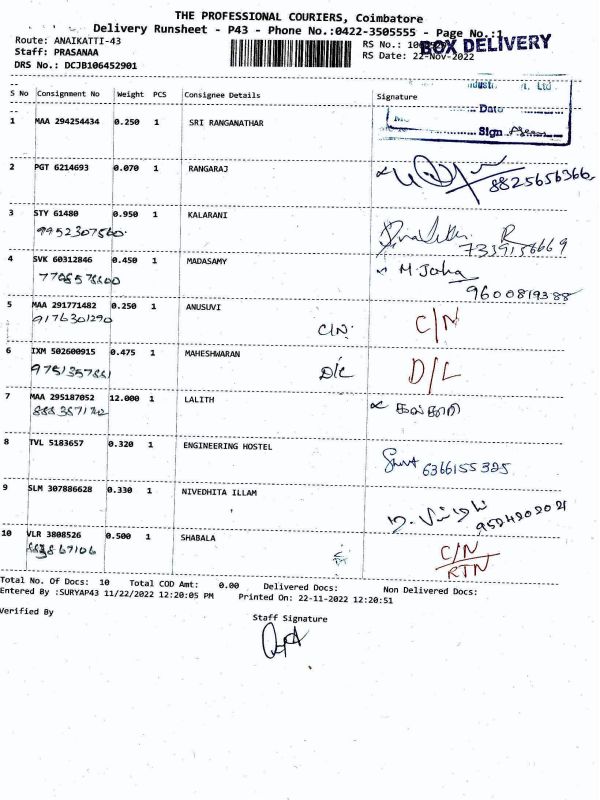 THE PROFESSIONAL COURIERS, Coimbatore
Delivery Runsheet - P43 - Phone No.:0422-3505555 - Page No.:1
Route: ANAIKATTI-43
RS No.:
BOX DELIVERY
Staff: PRASANAA
RS Date: 22-Nov-2022
DRS No.: DCJB106452901
S No Consignment No Weight PCS Consignee Details Signature
Ltd
Date
1 MAA 294254434 0.250 1 SRI RANGANATHAR
Sign
2 PGT 6214693 0.070 1 RANGARAJ
8825656366
3 STY 61480 0.950 1 KALARANI
9952307560
R
7339156669
4 SVK 60312846 0.450 1 MADASAMY M. Joha
9600819388
5 MAA 291771482 0.250 1 ANUSUVI
9176301290 C/N C/N
6 IXM 502600915 0.475 1 MAHESHWARAN
9751357881 D/L D/L
7 MAA 295187052 12.000 1 LALITH
8 TVL 5183657 0.320 1 ENGINEERING HOSTEL
6366155325
9 SLM 307886628 0.330 1 NIVEDHITA ILLAM
9524202021
10 VLR 3808526 0.500 1 SHABALA C/N
RTN
Total No. Of Docs: 10 Total COD Amt: 0.00 Delivered Docs: Non Delivered Docs:
Entered By :SURYAP43 11/22/2022 12:20:05 PM Printed On: 22-11-2022 12:20:51
Verified By
Staff Signature